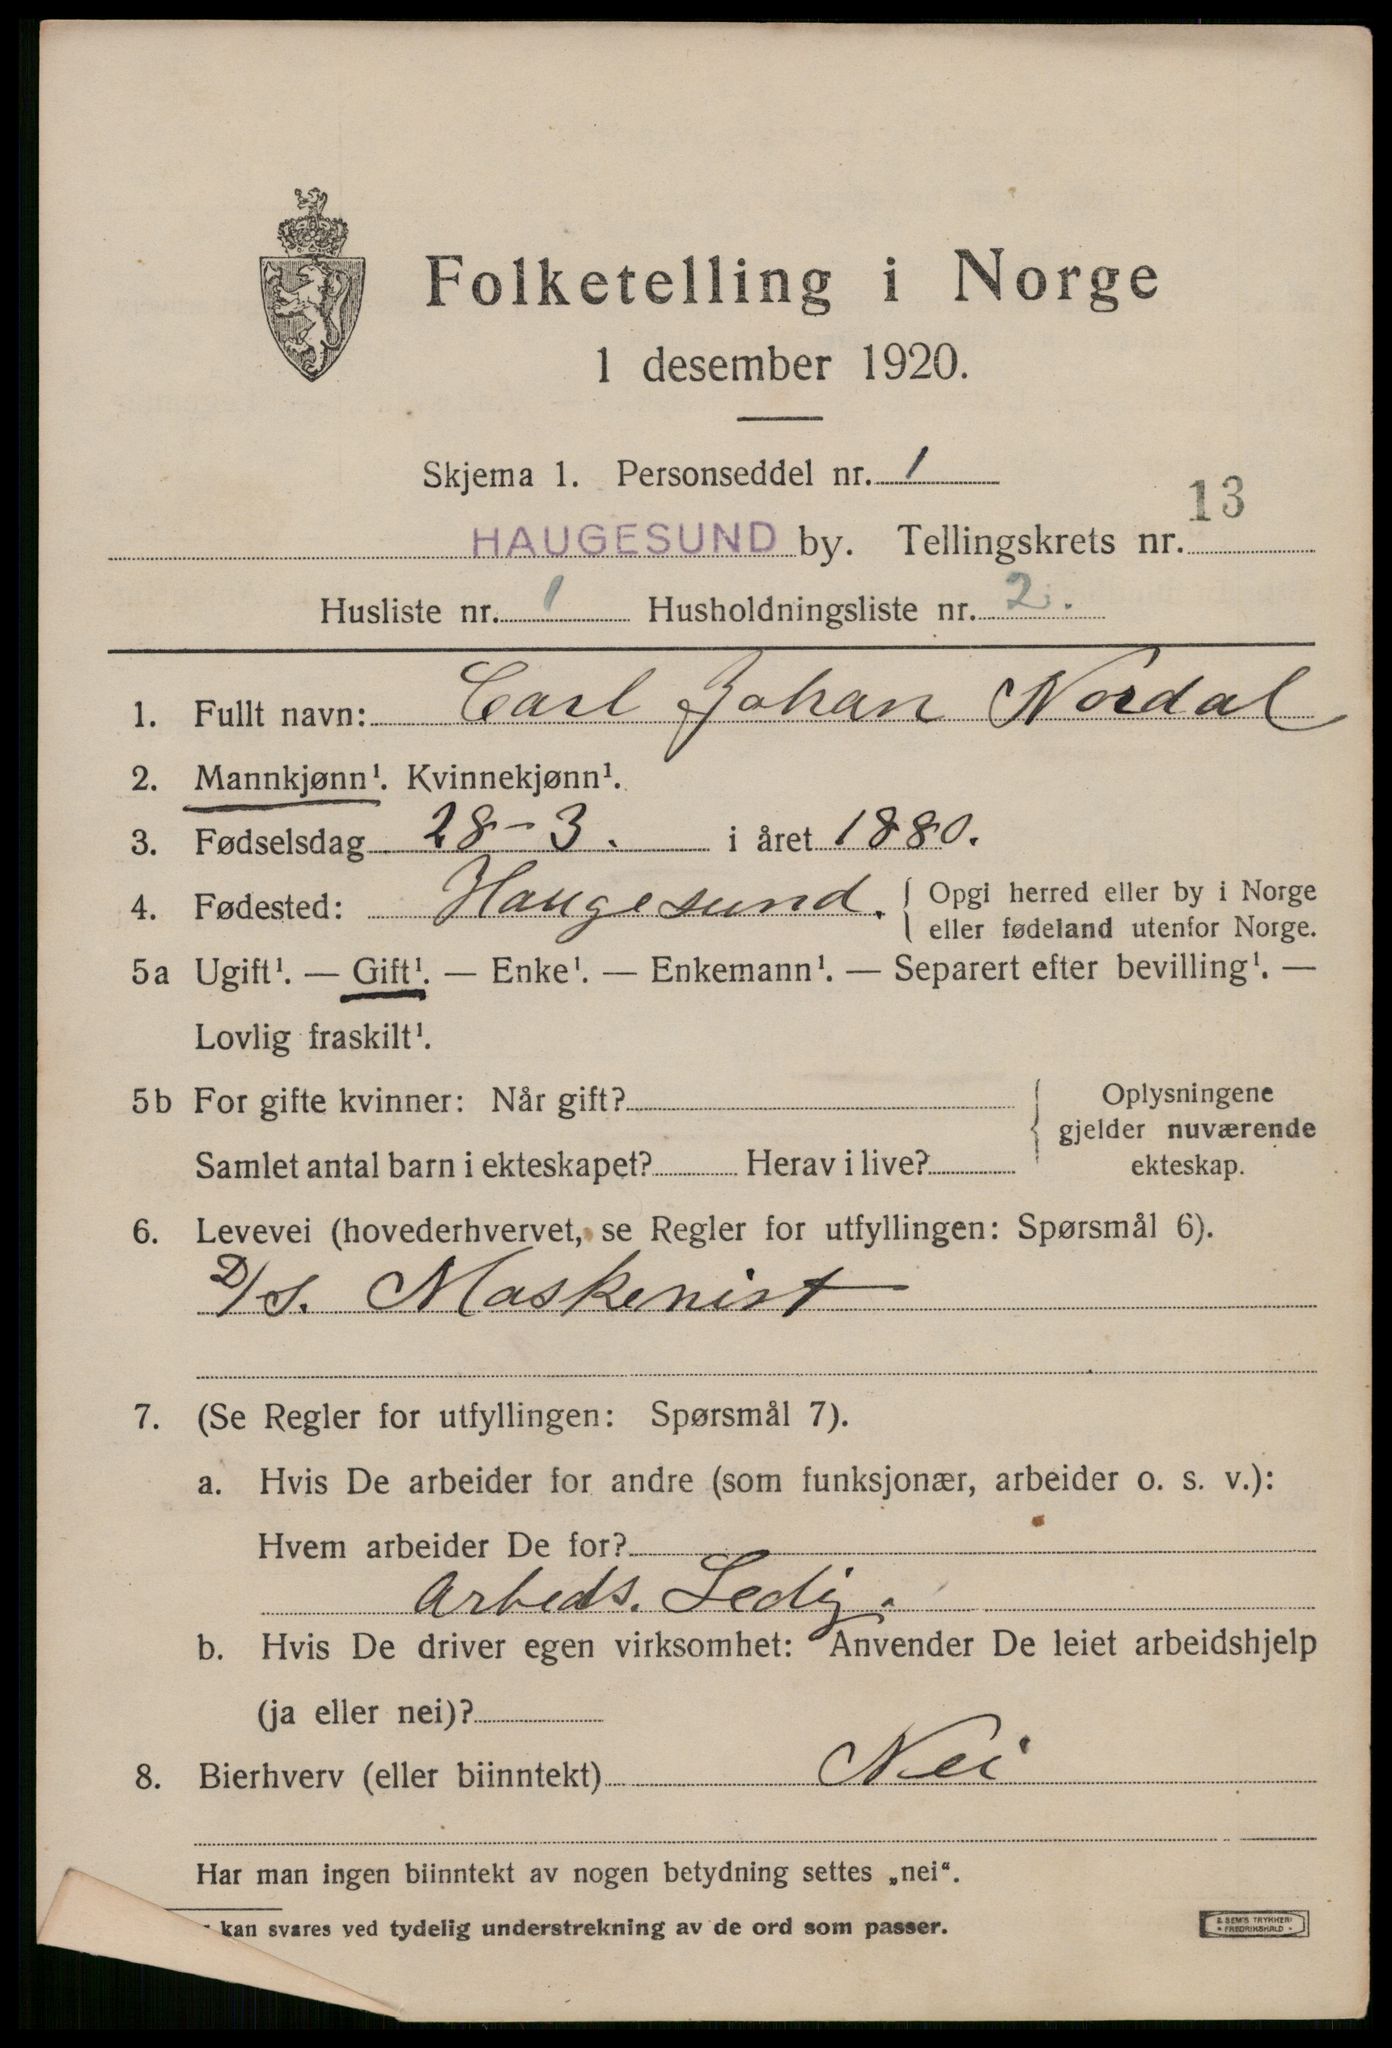 Folketelling i Norge
1 desember 1920.
Skjema 1. Personseddel nr. 1
HAUGESUND by. Tellingskrets nr. 13
Husliste nr. 1 Husholdningsliste nr. 2.
1. Fullt navn: Carl Johan Nordal
2. Mannkjønn¹. Kvinnekjønn¹.
3. Fødselsdag 28-3. i året 1880.
4. Fødested: Haugesund. { Opgi herred eller by i Norge
eller fødeland utenfor Norge.
5a Ugift¹. — Gift¹. — Enke¹. — Enkemann¹. — Separert efter bevilling¹. —
Lovlig fraskilt¹.
5b For gifte kvinner: Når gift? { Oplysningene
gjelder nuværende
Samlet antal barn i ekteskapet? Herav i live? ekteskap.
6. Levevei (hovederhvervet, se Regler for utfyllingen: Spørsmål 6).
D/S. Maskenist
7. (Se Regler for utfyllingen: Spørsmål 7).
a. Hvis De arbeider for andre (som funksjonær, arbeider o. s. v.):
Hvem arbeider De for?
Arbeds. Ledig.
b. Hvis De driver egen virksomhet: Anvender De leiet arbeidshjelp
(ja eller nei)?
8. Bierhverv (eller biinntekt) Nei
Har man ingen biinntekt av nogen betydning settes „nei“.
kan svares ved tydelig understrekning av de ord som passer.
SEM'S TRYKKERI
• FREDRIKSHALD •